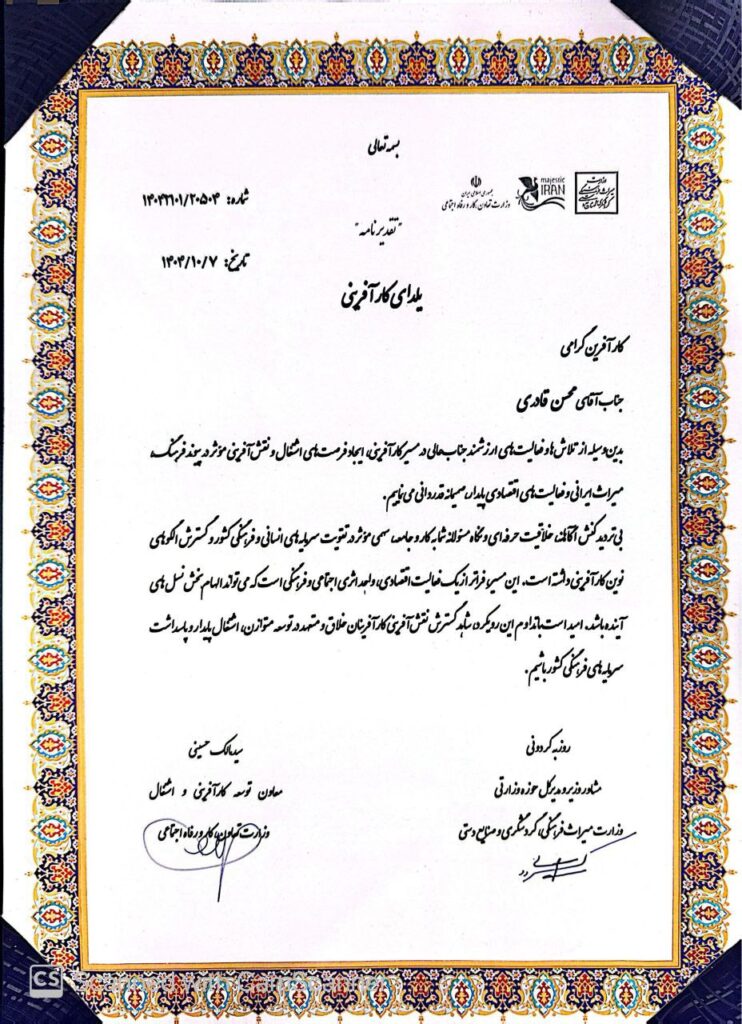 بسمه تعالی
وزارت میراث فرهنگی گردشگری و صنایع دستی
majestic
IRAN
جمهوری اسلامی ایران
وزارت تعاون، کار و رفاه اجتماعی
شماره: ۱۴۰۴۲۱۰۱/۲۰۵۰۴
"تقدیرنامه"
تاریخ: ۱۴۰۴/۱۰/۷
یلدای کارآفرینی
کارآفرین گرامی
جناب آقای محسن قادری
بدین وسیله از تلاش ها و فعالیت های ارزشمند جناب عالی در مسیر کارآفرینی، ایجاد فرصت های اشتغال و نقش آفرینی مؤثر در پیوند فرهنگ،
میراث ایرانی و فعالیت های اقتصادی پایدار، صمیمانه قدردانی می نماییم.
بی تردید کنش آگاهانه، خلاقیت حرفه ای و نگاه مسئولانه شما به کار و جامعه، سهمی مؤثر در تقویت سرمایه های انسانی و فرهنگی کشور و گسترش الگوهای
نوین کارآفرینی داشته است. این مسیر، فراتر از یک فعالیت اقتصادی، واجد اثری اجتماعی و فرهنگی است که می تواند الهام بخش نسل های
آینده باشد. امید است با تداوم این رویکرد، شاهد گسترش نقش آفرینی کارآفرینان خلاق و متعهد در توسعه متوازن، اشتغال پایدار و پاسداشت
سرمایه های فرهنگی کشور باشیم.
روزبه کردونی
مشاور وزیر و مدیرکل حوزه وزارتی
وزارت میراث فرهنگی، گردشگری و صنایع دستی
سید مالک حسینی
معاون توسعه کارآفرینی و اشتغال
وزارت تعاون، کار و رفاه اجتماعی
CS Scanned with CamScanner